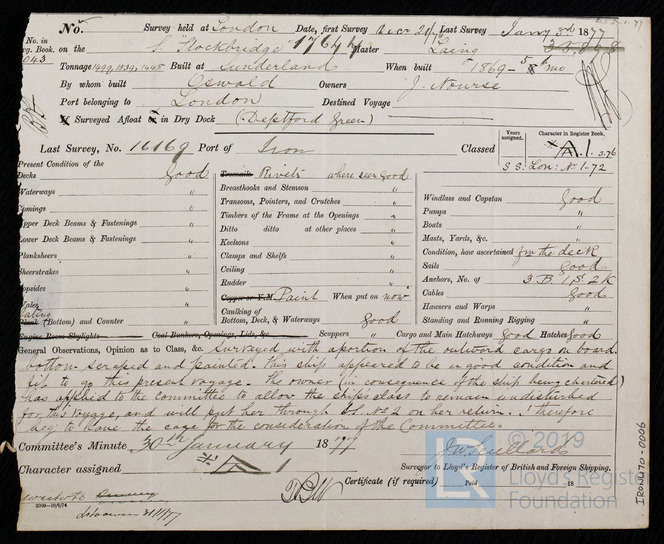 No. Survey held at London Date, first Survey Decr 20/76 Last Survey Jany 3rd 1877
No. in Reg. Book. on the S "Stockbridge" 1764 Master Laing
Tonnage 1499, 1839, 1445 Built at Sunderland When built 1869-5 mo
By whom built Oswald Owners J. Nourse
Port belonging to London Destined Voyage
Surveyed Afloat & in Dry Dock (Deptford Green)
Last Survey, No. 16169 Port of Iron Classed
Years assigned. Character in Register Book.
A.1. 3.76
S.S. Lon: No 1-72
Present Condition of the
Decks Good
Waterways "
Comings "
Upper Deck Beams & Fastenings "
Lower Deck Beams & Fastenings "
Planksheers "
Sheerstrakes "
Topsides "
Wales "
Plating
Plank (Bottom) and Counter "
Engine Room Skylights
Treenails Rivets where seen Good
Breasthooks and Stemson "
Transoms, Pointers, and Crutches "
Timbers of the Frame at the Openings "
Ditto ditto at other places "
Keelsons "
Clamps and Shelfs "
Ceiling "
Rudder "
Copper or Y.M. Paint When put on now
Caulking of
Bottom, Deck, & Waterways Good
Coal Bunkers, Openings, Lids, &c.
Windlass and Capstan Good
Pumps "
Boats "
Masts, Yards, &c. "
Condition, how ascertained from the deck
Sails Good
Anchors, No. of 3 B. 1 St 2 K
Cables Good
Hawsers and Warps "
Standing and Running Rigging "
Scuppers Cargo and Main Hatchways Good Hatches Good
General Observations, Opinion as to Class, &c. Surveyed with a portion of the outward cargo on board,
bottom scraped and painted. This ship appeared to be in good condition and
fit to go this present voyage. The owner (in consequence of the ship being chartered)
has applied to the Committee to allow the ships class to remain undisturbed
for this voyage, and will put her through SS. No 2 on her return. I therefore
beg to leave the case for the consideration of the Committee.
Committee's Minute 30th January 1877
Character assigned A 1
Surveyor to Lloyd's Register of British and Foreign Shipping.
Certificate (if required) Paid 18
2000-10/6/74
© 2019
LR
Lloyd's Register
Foundation
IRON470-0006